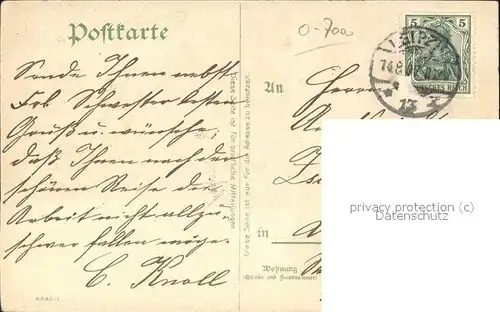 Postkarte
0-700
Sende Ihnen nebst
Frl. Schwester besten
Gruß u. wünsche,
daß Ihnen nach der
schönen Reise die
Arbeit nicht allzu-
schwer fallen möge.
C. Knoll
Diese Seite ist für briefliche Mitteilungen
Diese Seite ist nur für die Adresse zu benutzen.
An
Herrn
in
Wohnung
(Straße und Hausnummer)
5 5
DEUTSCHES REICH
LEIPZIG
14.8.
13
privacy protection (c)
Datenschutz